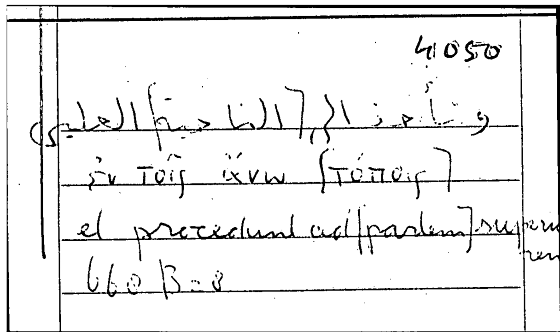 4050
وتأخذ الى [الناحية] العليا
ἐν τοῖς ἄνω [τόποις]
et procedunt ad [partem] superio
rem
660 B - 8